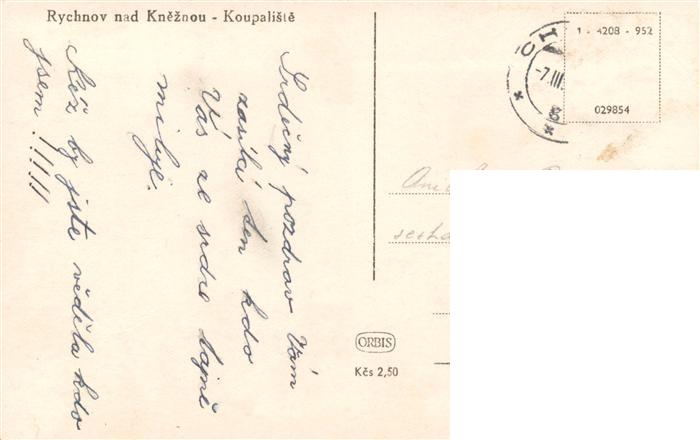 Rychnov nad Kněžnou - Koupaliště
Srdečný pozdrav Vám
zasílá ten kdo
Vás ze srdce tajně
miluje.
Kéž by jste věděla kdo
jsem. !!!!!
1 - 4208 - 952
029854
-7.III.
ORBIS
Kčs 2,50